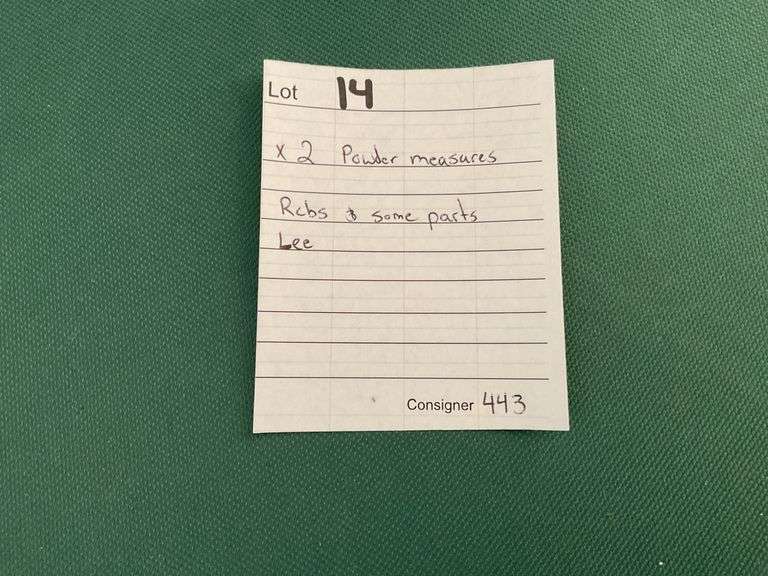 Lot 14
x 2 Powder measures
Rcbs & some parts
Lee
Consigner 443